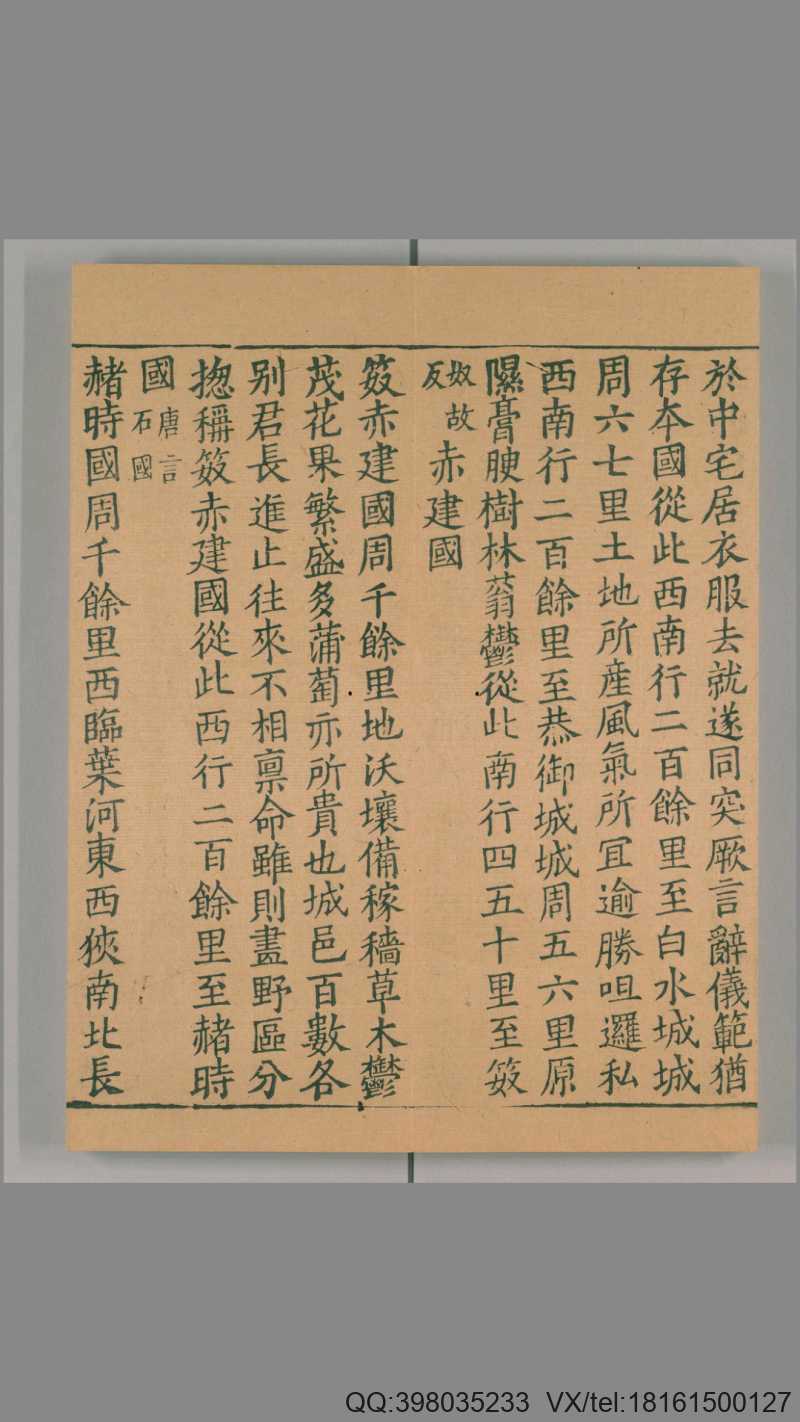 於中宅居衣服去就遂同突厥言辭儀範猶
存本國從此西南行二百餘里至白水城城
周六七里土地所産風氣所冝逾勝呾邏私
西南行二百餘里至恭御城城周五六里原
隰膏腴樹林蓊鬱從此南行四五十里至笯
奴故反赤建國
笯赤建國周千餘里地沃壤備稼穡草木鬱
茂花果繁盛多蒲萄亦所貴也城邑百數各
别君長進止往來不相禀命雖則畫野區分
揔稱笯赤建國從此西行二百餘里至赭時
國唐言石國
赭時國周千餘里西臨葉河東西狹南北長
QQ:398035233 VX/tel:18161500127